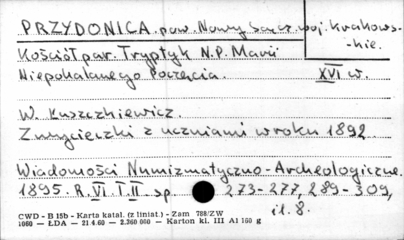 PRZYDONICA. pow. Nowy Sącz. woj. Krakows-
-kie.
Kościół par. Tryptyk N.P. Marii
Niepokalanego Poczęcia. XVI w.
W. Kuszczkiewicz.
Z wycieczki z uczniami w roku 1892
Wiadomości Numizmatyczno-Archeologiczne.
1895. R. VI. T. II sp. 273-277, 289-309,
il. 8.
CWD - B 15b - Karta katal. (z liniat.) - Zam 788/ZW
1060 — ŁDA — 21.4.60 — 2.360 000 — Karton kl. III A1 160 g